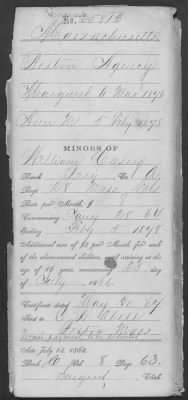 No. 25818
Massachusetts
Boston Agency
Margaret 6 Mar 1876
5 Feby 1878
MINORS OF
William Casey
Rank Priv, Co. A,
Regt 28 Mass Vols
Rate per Month, $ 8
Commencing Jany 28 64
Ending Feby 5 1878
Additional sum of $2 per Month for each
of the abovenamed children, until arriving at the
age of 16 years, commencing 25 day
of July 1866.
Certificate dated May 30 67
Sent to
Boston Mass
Act July 14 1862
Book C Vol. 8 Page 63.
Sargent, Clerk